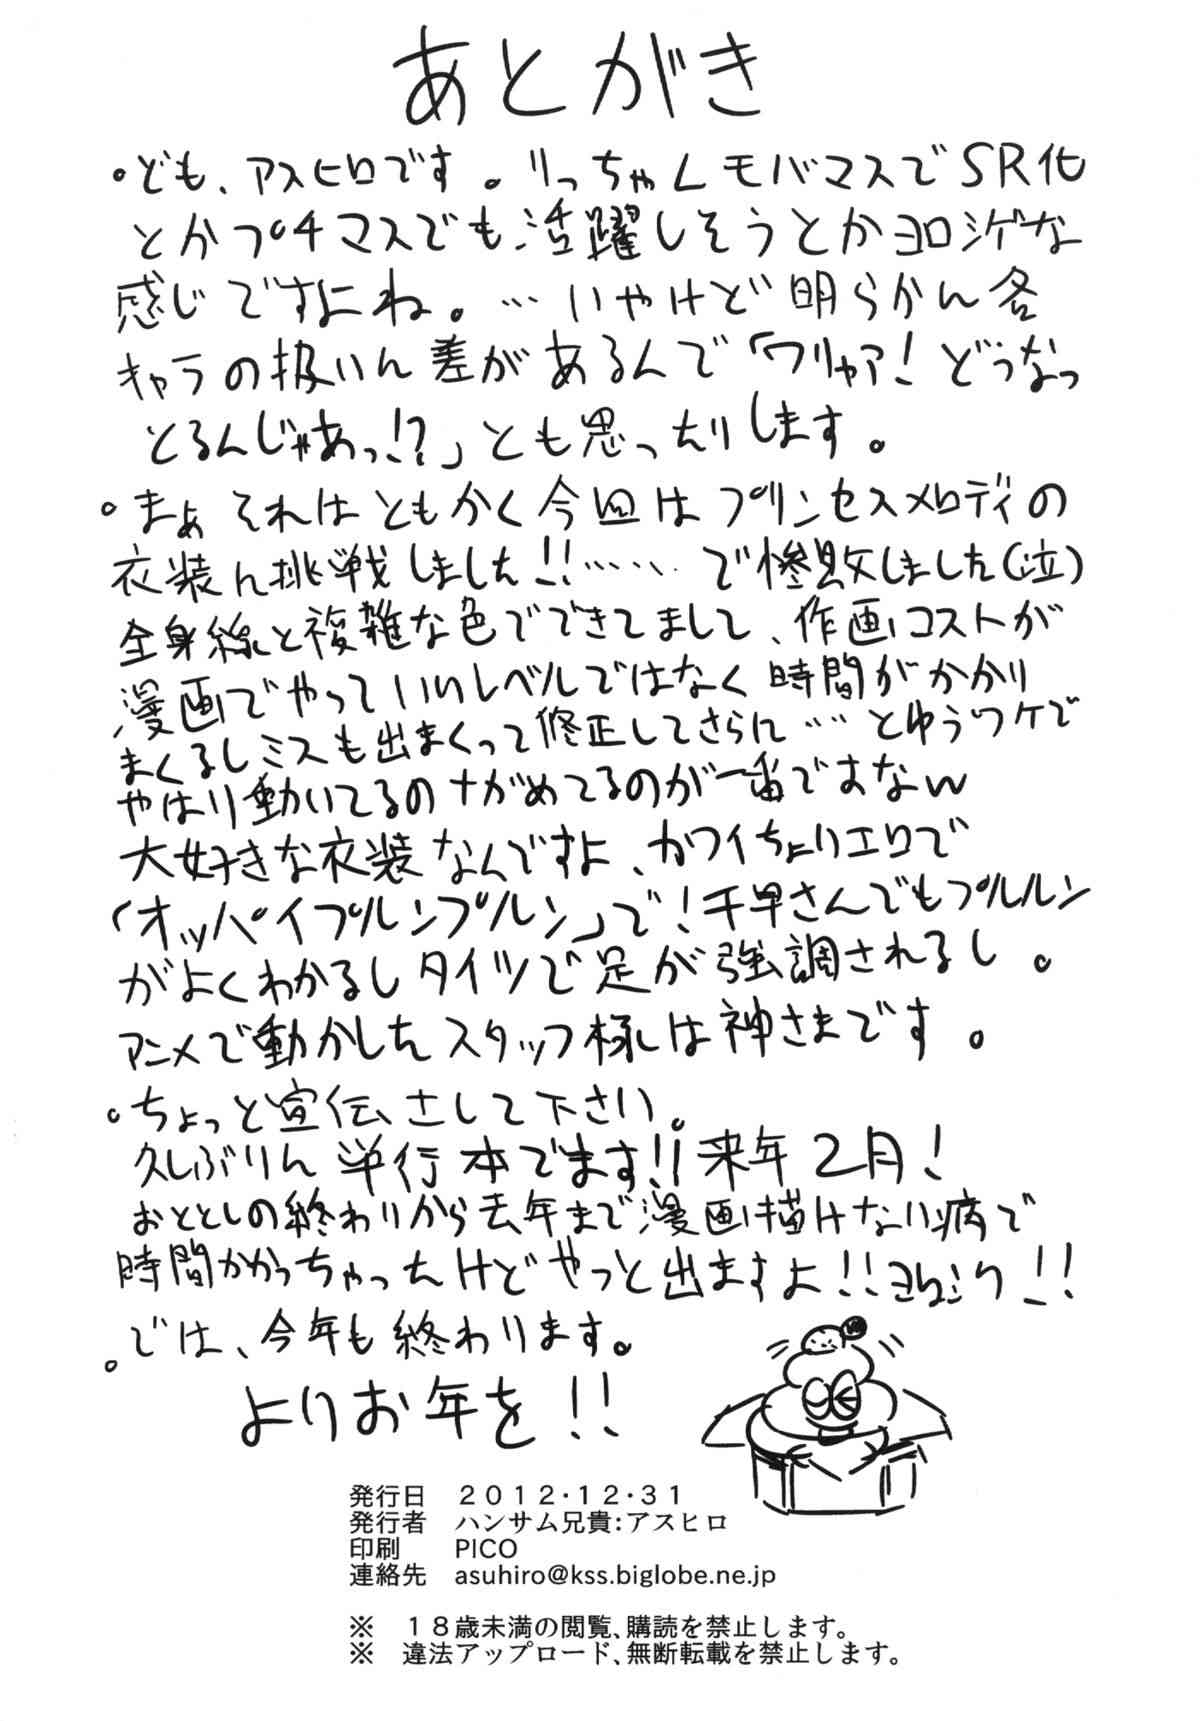 あとがき
・ども、アスヒロです。りっちゃんモバマスでSR化
とかプチマスでも活躍しそうとかヨロシゲな
感じですよね。…いやけど明らかに各
キャラの扱いに差があるんで「ワリャア!どうなっ
とるんじゃあっ!?」とも思ったりします。
・まぁそれはともかく今回はプリンセスメロディの
衣装に挑戦しました!!……で惨敗しました(泣)
全身線と複雑な色でできてまして、作画コストが
漫画でやっていいレベルではなく時間がかかり
まくるしミスも出まくって修正してさらに……とゆうワケで
やはり動いてるのながめてるのが一番ですなw
大好きな衣装なんですよ、カワイちょりエロで
「オッパイプルンプルン」で!千早さんでもプルルン
がよくわかるしタイツで足が強調されるし。
アニメで動かしたスタッフ様は神さまです。
・ちょっと宣伝さして下さい。
久しぶりに単行本でます!!来年2月!
おととしの終わりから去年まで漫画描けない病で
時間かかっちゃったけどやっと出ますよ!!ヨロシク!!
・では、今年も終わります。
よいお年を!!
発行日 2012・12・31
発行者 ハンサム兄貴:アスヒロ
印刷 PICO
連絡先 asuhiro@kss.biglobe.ne.jp
※ 18歳未満の閲覧、購読を禁止します。
※ 違法アップロード、無断転載を禁止します。